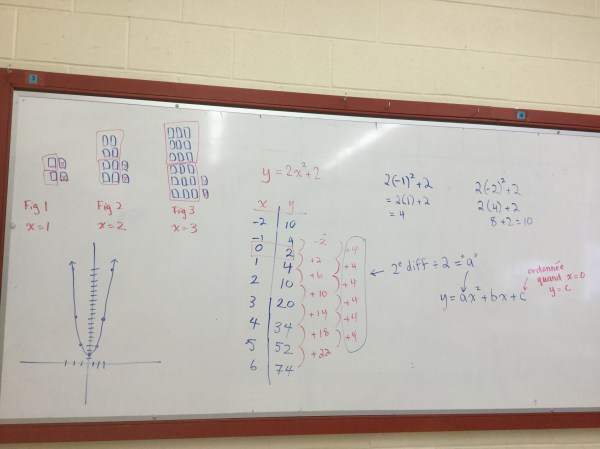 3
4
Fig 1
x = 1
Fig 2
x = 2
Fig 3
x = 3
y = 2x² + 2
x y
-2 10
-1 4
0 2
1 4
2 10
3 20
4 34
5 52
6 74
-2
+2
+6
+10
+14
+18
+22
+4
+4
+4
+4
+4
+4
2(-1)² + 2
= 2(1) + 2
= 4
2(-2)² + 2
2(4) + 2
8 + 2 = 10
← 2e diff ÷ 2 = "a"
y = ax² + bx + c
ordonnée
quand x = 0
y = c